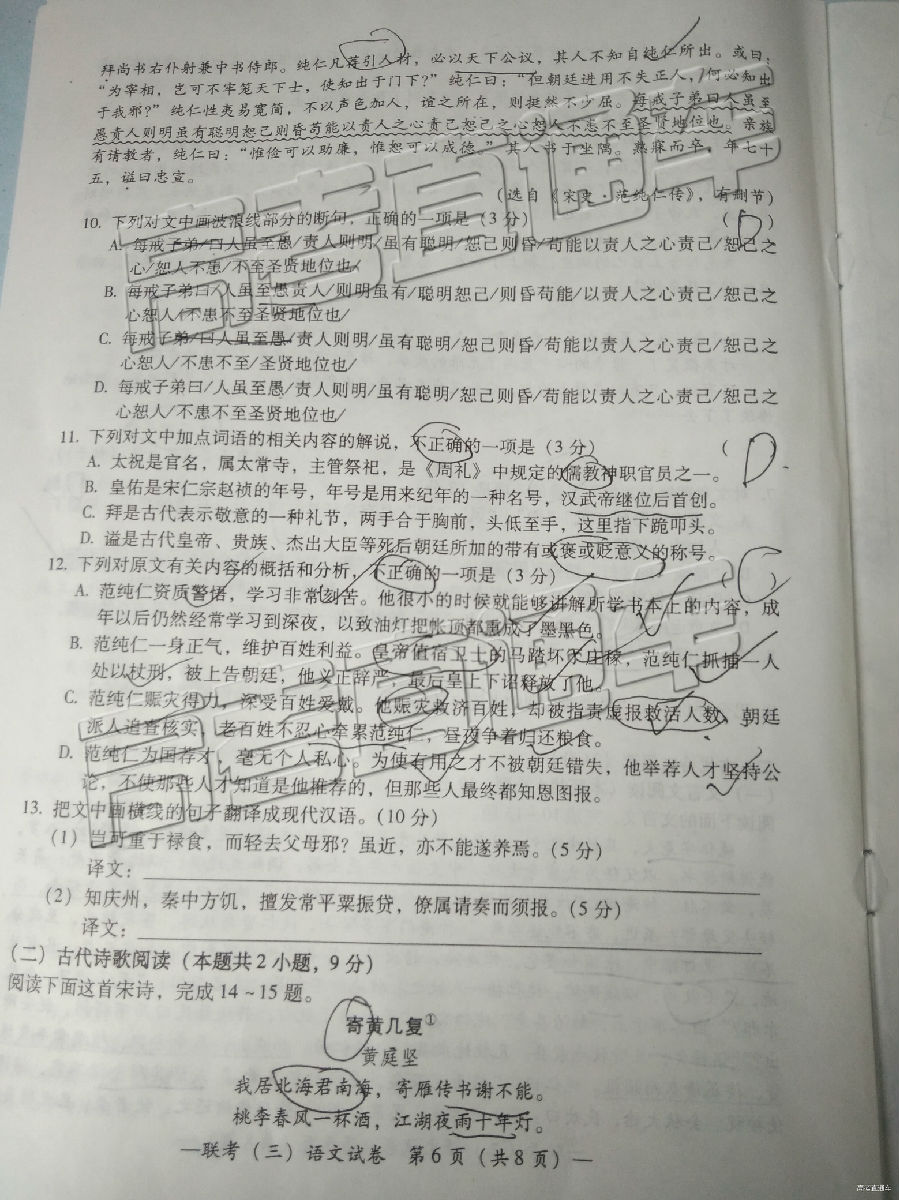 拜尚书右仆射兼中书侍郎。纯仁凡荐引人材，必以天下公议，其人不知自纯仁所出。或曰：
“为宰相，岂可不牢笼天下士，使知出于门下？”纯仁曰：“但朝廷进用不失正人，何必知出
于我邪？”纯仁性夷易宽简，不以声色加人，谊之所在，则挺然不少屈。每戒子弟曰人虽至
愚责人则明虽有聪明恕己则昏苟能以责人之心责己恕己之心恕人不患不至圣贤地位也。亲族
有请教者，纯仁曰：“惟俭可以助廉，惟恕可以成德。”其人书于坐隅。熟寐而卒，年七十
五，谥曰忠宣。
（选自《宋史·范纯仁传》，有删节）
10. 下列对文中画波浪线部分的断句，正确的一项是（3 分） （ D ）
A. 每戒子弟/曰人虽至愚/责人则明/虽有聪明/恕己则昏/苟能以责人之心责己/恕己之
心/恕人不患/不至圣贤地位也/
B. 每戒子弟曰/人虽至愚责人/则明虽有/聪明恕己/则昏苟能/以责人之心责己/恕己之
心恕人/不患不至圣贤地位也/
C. 每戒子弟/曰人虽至愚/责人则明/虽有聪明/恕己则昏/苟能/以责人之心责己/恕己之
心恕人/不患不至/圣贤地位也/
D. 每戒子弟曰/人虽至愚/责人则明/虽有聪明/恕己则昏/苟能以责人之心责己/恕己之
心恕人/不患不至圣贤地位也/
11. 下列对文中加点词语的相关内容的解说，不正确的一项是（3 分） （ D
A. 太祝是官名，属太常寺，主管祭祀，是《周礼》中规定的儒教神职官员之一。
B. 皇佑是宋仁宗赵祯的年号，年号是用来纪年的一种名号，汉武帝继位后首创。
C. 拜是古代表示敬意的一种礼节，两手合于胸前，头低至手，这里指下跪叩头。
D. 谥是古代皇帝、贵族、杰出大臣等死后朝廷所加的带有或褒或贬意义的称号。
12. 下列对原文有关内容的概括和分析，不正确的一项是（3 分） （ C ）
A. 范纯仁资质警悟，学习非常刻苦。他很小的时候就能够讲解所学书本上的内容，成
年以后仍然经常学习到深夜，以致油灯把帐顶都熏成了墨黑色。
B. 范纯仁一身正气，维护百姓利益。皇帝值宿卫士的马踏坏了庄稼，范纯仁抓捕一人
处以杖刑，被上告朝廷，他义正辞严，最后皇上下诏释放了他。
C. 范纯仁赈灾得力，深受百姓爱戴。他赈灾救济百姓，却被指责虚报救活人数，朝廷
派人追查核实，老百姓不忍心牵累范纯仁，昼夜争着归还粮食。
D. 范纯仁为国荐才，毫无个人私心。为使有用之才不被朝廷错失，他举荐人才坚持公
论，不使那些人才知道是他推荐的，但那些人最终都知恩图报。
13. 把文中画横线的句子翻译成现代汉语。（10 分）
（1）岂可重于禄食，而轻去父母邪？虽近，亦不能遂养焉。（5 分）
译文：
（2）知庆州，秦中方饥，擅发常平粟振贷，僚属请奏而须报。（5 分）
译文：
（二）古代诗歌阅读（本题共 2 小题，9 分）
阅读下面这首宋诗，完成 14～15 题。
寄黄几复①
黄庭坚
我居北海君南海，寄雁传书谢不能。
桃李春风一杯酒，江湖夜雨十年灯。
—联考（三）语文试卷 第 6 页（共 8 页）—
高考直通车
高考直通车
高考直通车